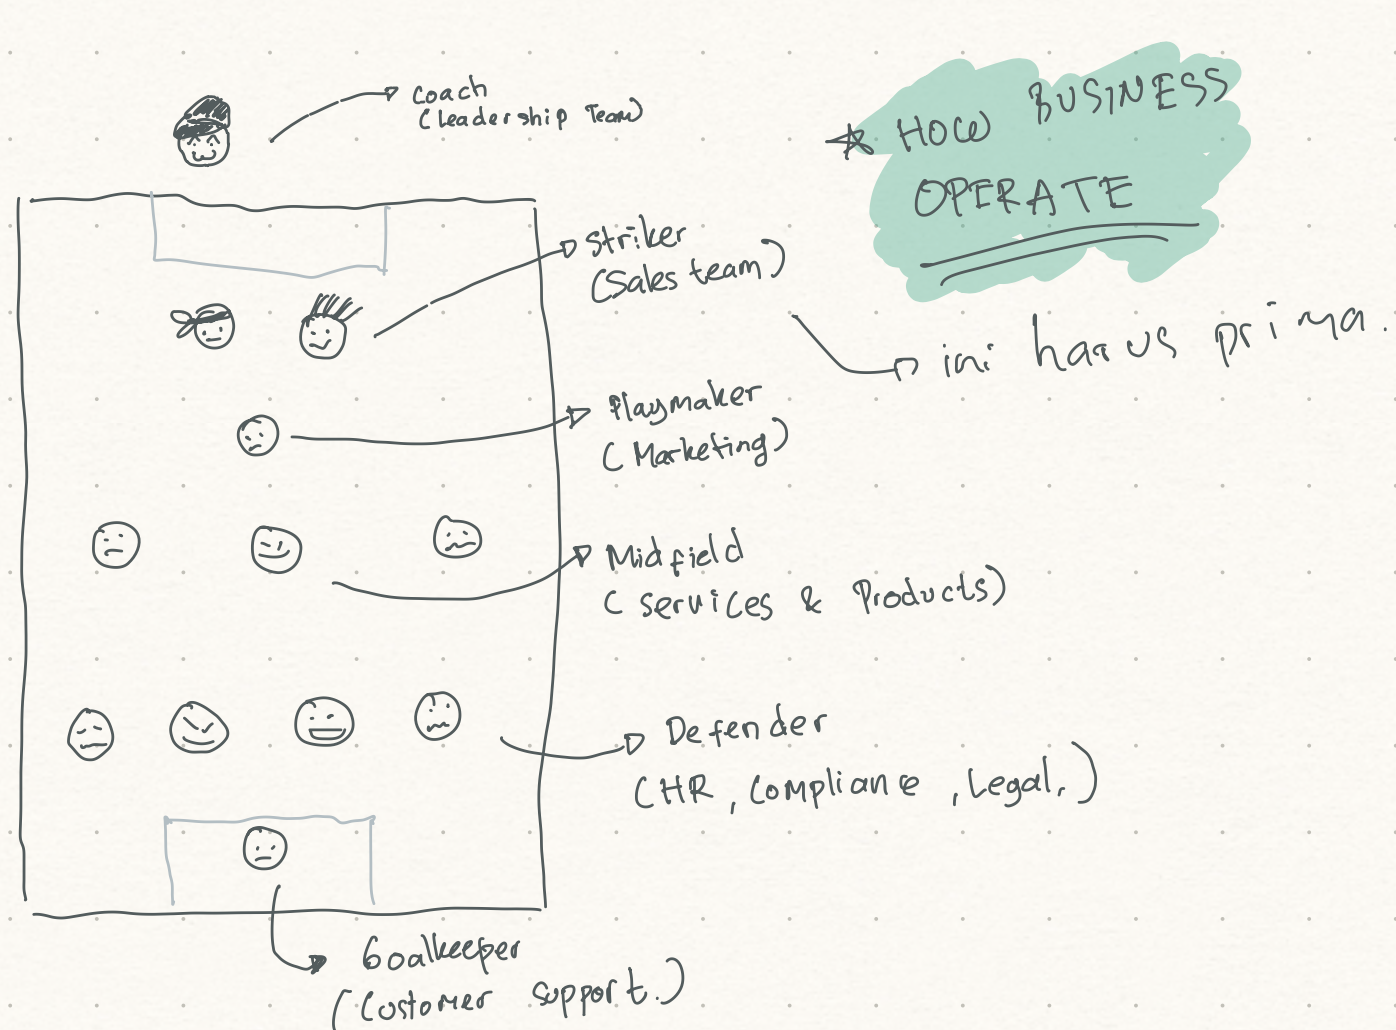 Coach
(Leadership Team)
HOW BUSINESS
OPERATE
Striker
(Sales team)
ini harus prima.
Playmaker
(Marketing)
Midfield
(Services & Products)
Defender
(HR, Compliance, Legal,)
Goalkeeper
(Customer support.)